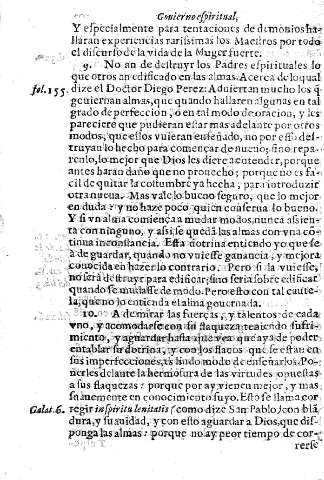 Gouierno espiritual,
Y especialmente para tentaciones de demonios ha-
llaràn experiencias rarissimas los Maestros por todo
el discurso de la vida de la Muger fuerte.
9. No an de destruyr los Padres espirituales lo
que otros an edificado en las almas. Acerca de lo qual
fol. 155. dize el Doctor Diego Perez: Aduiertan mucho los q̃
gouiernan almas, que quando hallaren algunas en tal
grado de perfeccion, ò en tal modo de oracion, y les
pareciere que pudieran estar mas adelante por otros
modos, que ellos vuieran enseñado, no por esso des-
truyan lo hecho para començar de nueuo; sino repa-
renlo, lo mejor que Dios les diere a entender, porque
antes haràn daño que no prouecho; porque no es fa-
cil de quitar la costumbre ya hecha, para introduzir
otra nueua. Mas vale lo bueno seguro, que lo mejor
en duda? y no haze poco quien conserua lo bueno.
Y si vn alma comiença a mudar modos, nunca assien-
ta con ninguno, y assi se queda las almas con vna cõ-
tinua inconstancia. Esta dotrina entiendo yo que se
à de guardar, quando no vuiesse ganancia, y mejora
conocida en hazer lo contrario. Pero si la vuiesse,
no serà destruyr para edificar; sino seria sobre edificar
quando se mudasse de modo. Pero esto con tal caute-
la, que no lo entienda el alma gouernada.
10. A de mirar las fuerças, y talentos de cada
vno, y acomodarse con su flaqueza teniendo sufri-
miento, y aguardar hasta que vea que aya de poder
entablar su dotrina, y con los flacos que se estan en
sus imperfecciones, es lindo modo de enseñarlos. Po-
nerles delante la hermosura de las virtudes opuestas
a sus flaquezas: porque por ay vienen mejor, y mas
suauemente en conocimiento suyo. Esto se llama cor
Galat. 6. regir in spiritu lenitatis (como dize San Pablo) con blã
dura, y suauidad, y con esto aguardar a Dios, que dis-
ponga las almas: porque no ay peor tiempo de cor-
rerse